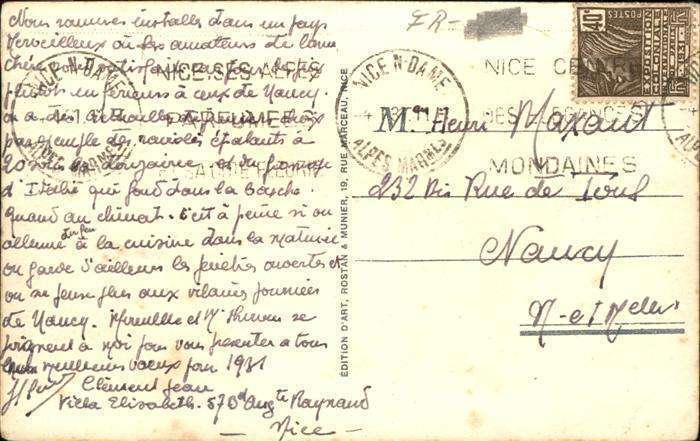 Nous sommes installés dans un pays
merveilleux où les amateurs de bonne
chère sont
plutôt inférieurs à ceux de Nancy.
On a des
par exemple des raviolis épatants à
20 sous la douzaine et du fromage
d'Italie qui fond dans la bouche.
Quand au climat. C'est à peine si on
allume du feu à la cuisine dans la matinée
on garde d'ailleurs les fenêtres ouvertes et
on ne pense plus aux vilaines journées
de Nancy. Mireille et Mr se
joignent à moi pour vous présenter à tous
meilleurs vœux pour 1931
Clément Jean
Villa Elisabeth. 57 Bd Augte Raynaud
- Nice -
ÉDITION D'ART, ROSTAN & MUNIER, 19, RUE MARCEAU, NICE
FR-
40c
POSTES
NICE N-DAME
ALPES MARMES
NICE SES ALPES
PARFUMÉES
SA CÔTE FLEURIE
NICE N-DAME
ALPES MARMES
NICE
MONDAINES
M. Henri Maxant
232 bis Rue de Toul
Nancy
M-et-Melle